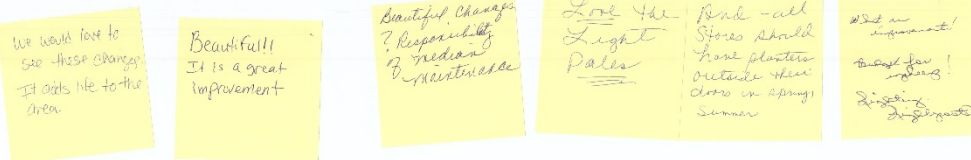 We would love to
see these changes
It adds life to the
area.
Beautiful!!
It is a great
improvement
Beautiful Changes
? Responsibility
of median
maintenance
Love the
Light
Poles
And - all
Stores should
have planters
outside their
doors in spring,
summer
improvement!